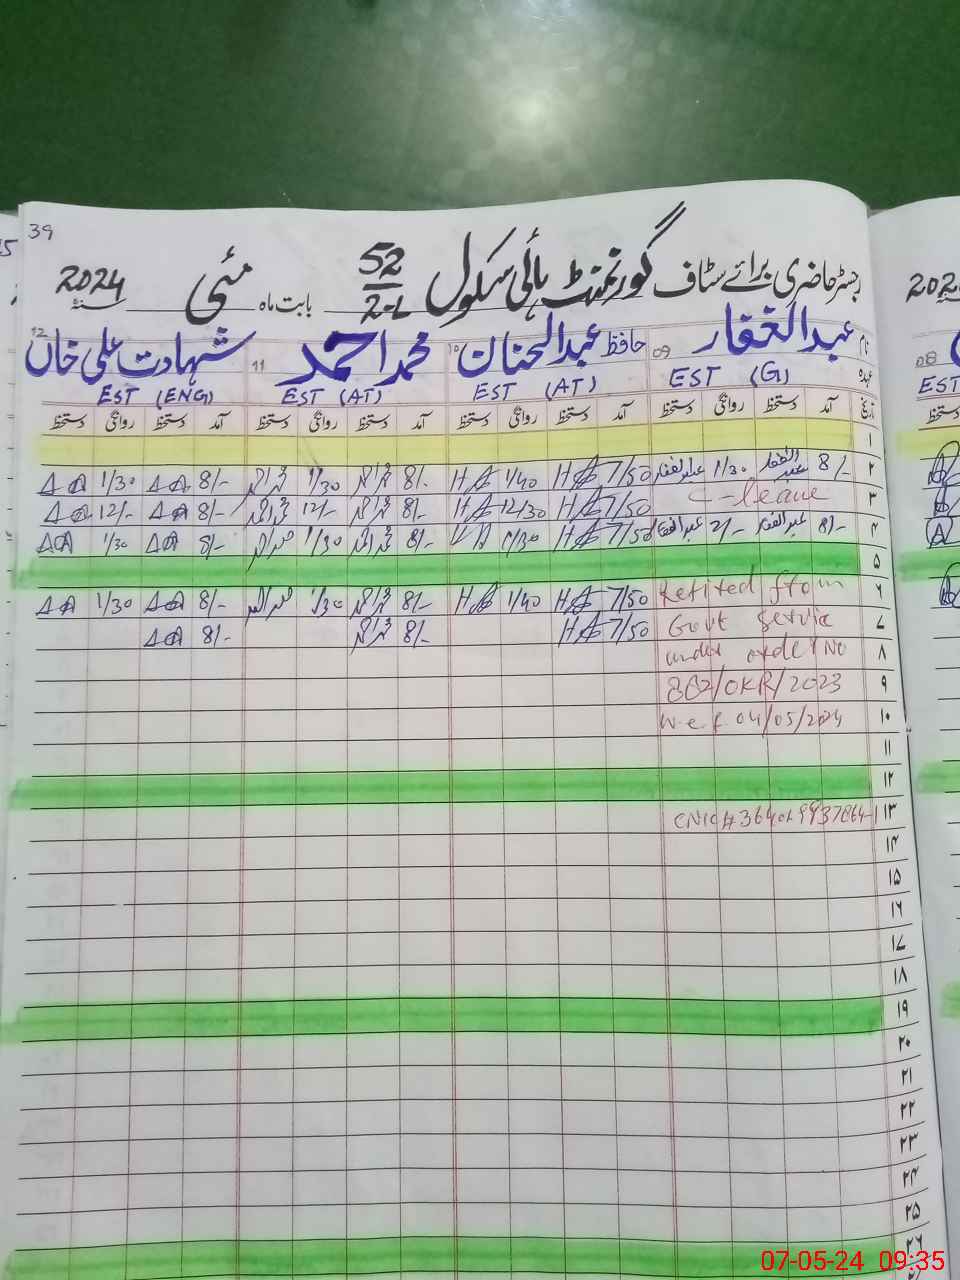 39
رجسٹر حاضری برائے سٹاف گورنمنٹ ہائی سکول 52/2-L بابت ماہ مئی سنہ 2024
نام 09 عبدالغفار 10 حافظ عبدالحنان 11 محمد احمد 12 شہادت علی خاں
عہدہ EST (G) EST (AT) EST (AT) EST (ENG)
تاریخ آمد دستخط روانگی دستخط آمد دستخط روانگی دستخط آمد دستخط روانگی دستخط آمد دستخط روانگی دستخط
۱
۲ 8/- عبدالغفار 1/30 عبدالغفار 7/50 1/40 8/- 1/30 8/- 1/30
۳ C-leave 7/50 12/30 8/- 12/- 8/- 12/-
۴ 8/- عبدالغفار 2/- عبدالغفار 7/50 1/30 8/- 1/30 8/- 1/30
۵
۶ Retired from 7/50 1/40 8/- 1/30 8/- 1/30
۷ Govt service 7/50 8/- 8/-
۸ under order No
۹ 802/OKR/2023
۱۰ w.e.f 04/05/2024
۱۱
۱۲
۱۳ CNIC#
۱۴
۱۵
۱۶
۱۷
۱۸
۱۹
۲۰
۲۱
۲۲
۲۳
۲۴
۲۵
۲۶
202
08
EST
دستخط
07-05-24 09:35